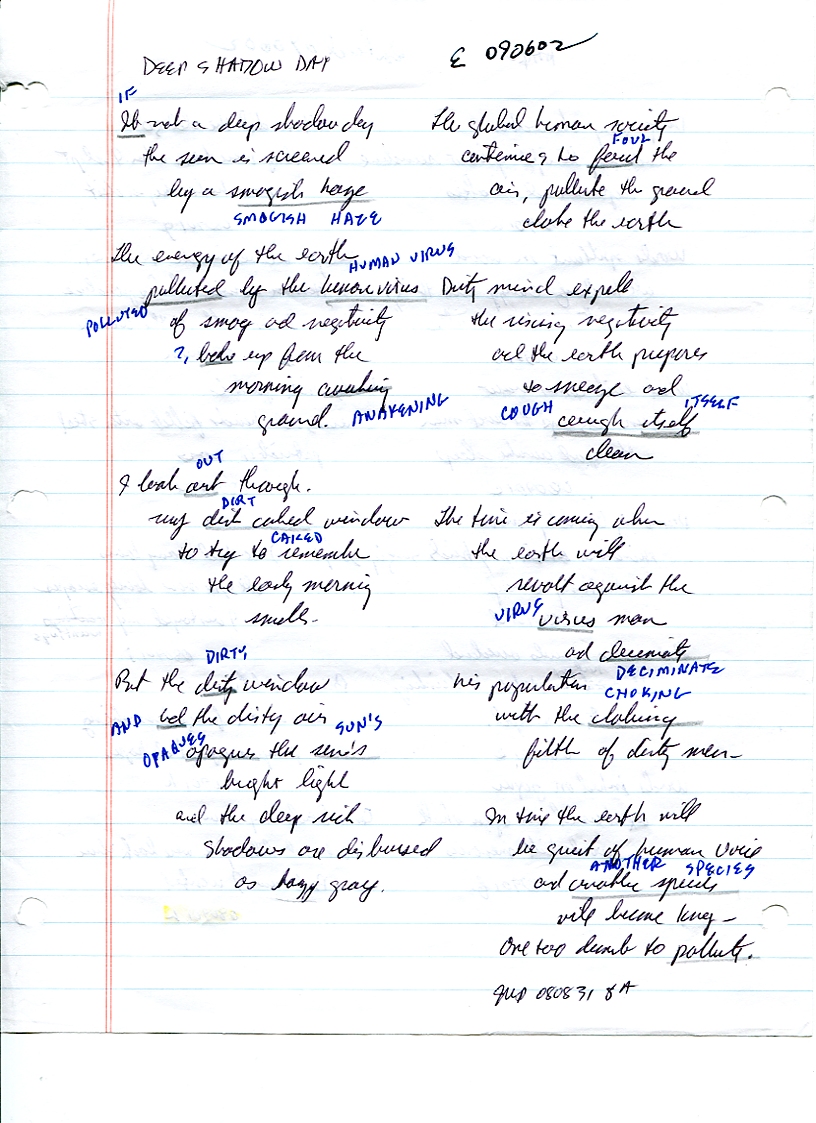 DEEP SHADOW DAY
E 090602
IF
If not a deep shadow day
the sun is screened
by a smogish haze
SMOGISH HAZE
The energy of the earth
HUMAN VIRUS
polluted by the human virus
POLLUTED
of smog and negativity
?, up from the
morning awaking
ground.
AWAKENING
OUT
I look out through
DIRT
my dirt caked window
CAKED
to try to remember
the early morning
smells.
DIRTY
But the dirty window
AND and the dirty air
SUN'S
OPAQUES
opaques the sun's
bright light
and the deep rich
shadows are disbursed
as hazy gray.
The global human society
FOUL
continues to foul the
air, pollute the ground
the earth
Dirty mind
the rising negativity
and the earth prepares
to sneeze and
COUGH
ITSELF
cough itself
clean
The time is coming when
the earth will
revolt against the
VIRUS
virus man
and decimate
DECIMINATE
his population
CHOKING
with the choking
filth of dirty men
In time the earth will
be quiet of human
ANOTHER SPECIES
and another species
will become king –
One too dumb to pollute.
080831 8A